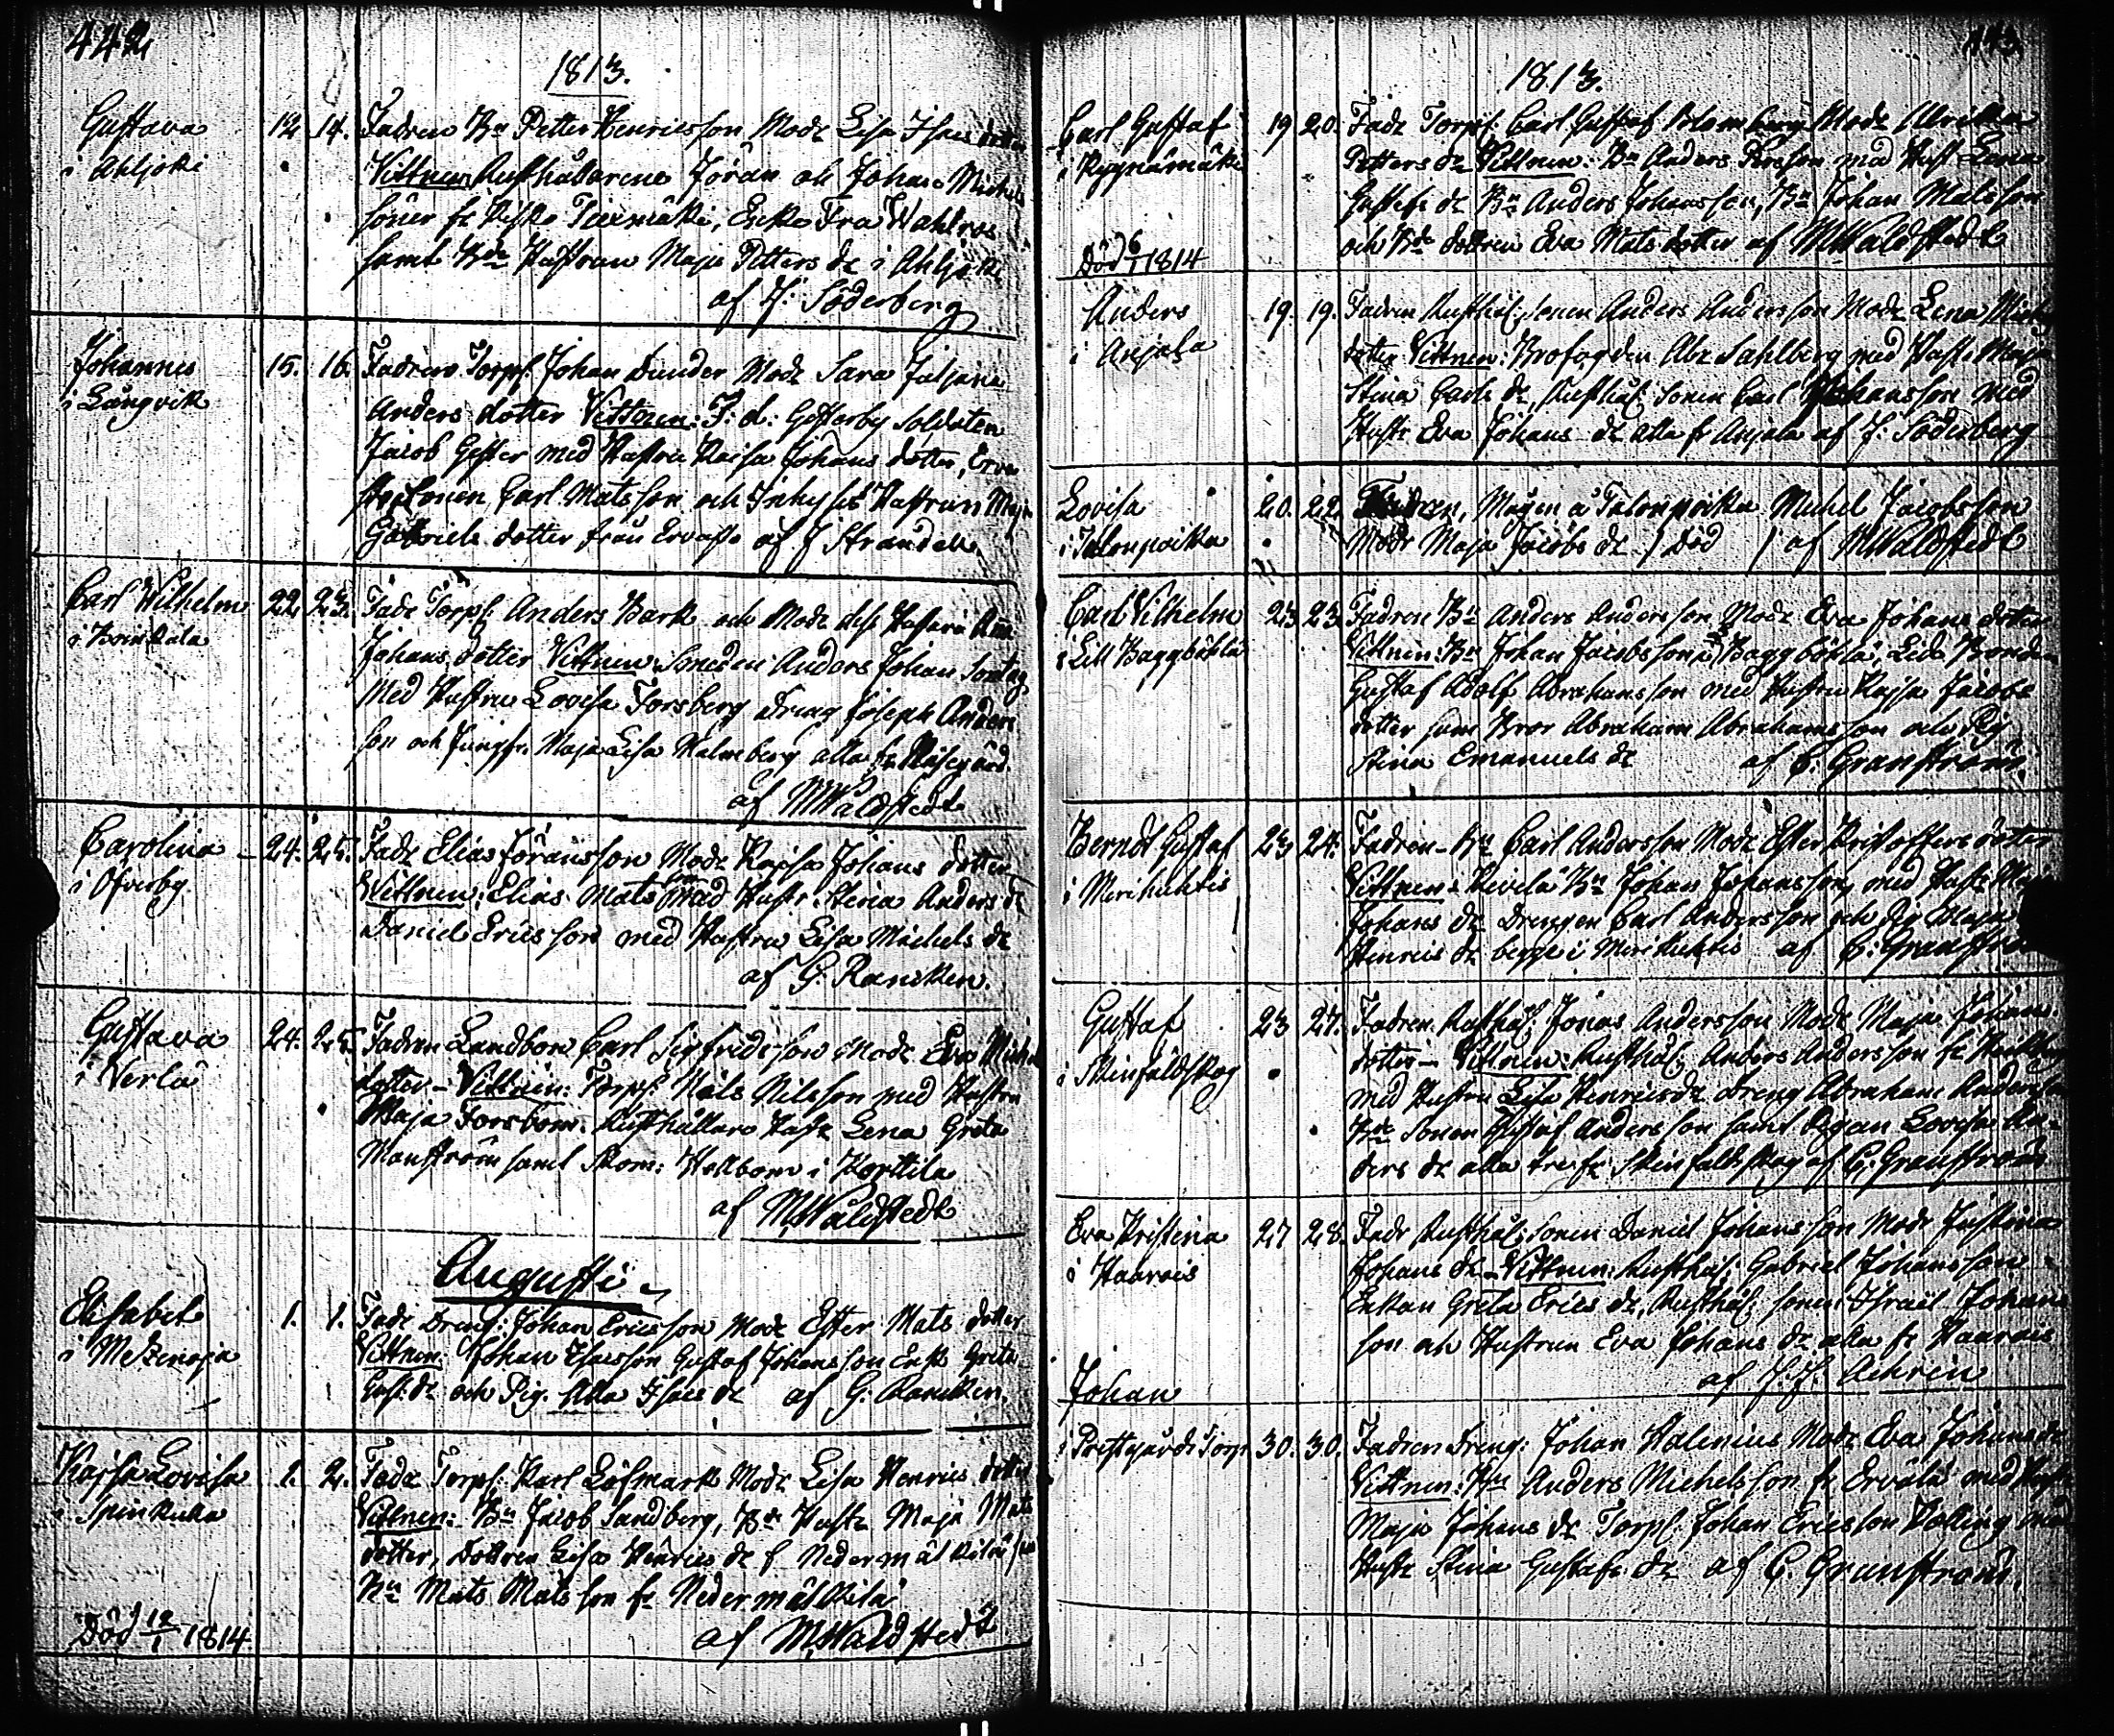 442
1813.
Gustava 12 14. Fadren Bn Petter Henricsson Modr Lisa Isacs dotter
i Ahljoki Vittnen Rusthålarene Jöran och Johan Michels
söner fr Tiermäki, Enka Fra Wahlros
samt Bde Hustrun Maja Petters dr i Ahljoki
af J: Söderberg
Johannes 15. 16. Fadren Torp: Johan Dunder Modr Sara Juljana
i Långvik Anders dotter Vittnen: F: d: Gesterby Soldaten
Jacob Gester med Hustru Kaisa Johans dotter,
Carl Matsson och Hustrun Maja
Gabriels dotter från af J Strandell
Carl Wilhelm 22 23. Fadr Torp: Anders Bark och Modr des Hustru
i Johans dotter Vittnen: Anders Johan
Med Hustru Lovisa Forsberg Dreng Joseph Anders
son och Jungfr. Maja Lisa Malmberg alla fr
af MWaldstedt
Carolina 24. 25. Fadr Elias Jöransson Modr Kajsa Johans dotter
i Öfverby Vittnen: Elias Matsson Med Hustr. Stina Anders dr
Daniel Ericsson med Hustru Lisa Michels dr
af G. Rancken.
Gustava 24. 25. Fadren Landbon Carl Sigfridsson Modr Eva Michels
i Verlä dotter – Vittnen: Torp: Nils Nilsson med Hustru
Maja Forsbom. Rusthållare Hustr Lena Greta
Monström samt Hellbom i Korttila
af MWaldstedt
Augusti
Elisabet 1. 1. Fadr Dreng: Johan Ericsson Modr Ester Mats dotter
i Metzenoja Vittnen: Johan Isacsson Gustaf Johansson Enk Greta
Gust: dr och Pig. Ulla Isacs dr af G. Rancken.
Kajsa Lovisa 1. 2. Fadr Torp: Karl Löfmark Modr Lisa Henrics dotter
i Vittnen: Bn Jacob Sandberg, Bde Hustr Maja Mats
dotter, Dottren Lisa Henrics dr f Nedermälkilä
Bn Mats Matsson fr Nedermälkilä
Död 12/1 1814 af MWaldstedt
443
1813.
Carl Gustaf 19 20. Fadr Torp: Carl Gustaf Blomberg Modr Ulrika
i Pyynämäki Petters dr Vittnen: Bn Anders Persson med Hust Lena
Gustafs dr Bn Anders Johansson, Bn Johan Matsson
och Bde dottren Eva Mats dotter af MWaldstedt
Död 6/1 1814
Anders 19. 19. Fadren Rusthål: sonen Anders Andersson Modr Lena Michels
i Anjala dotter Vittnen: Brofogden Abr Sahlberg med Hust: Maja
Stina Carls dr, Rusthål: sonen Carl Johansson med
Hustr Eva Johans dr alla fr Anjala af J: Söderberg
Lovisa 20. 22 Fadren, Mågen å Talonpoika Michel Jacobsson
i Talonpoika Modr Maja Jacobs dr / död / af MWaldstedt
Carl Vilhelm 23 23 Fadren Bn Anders Andersson Modr Eva Johans dotter
i Lill Baggböhla Vittnen: Bn Johan Jacobsson i Baggböhla, Led: Bonden
Gustaf Adolf Abrahamsson med Hustru Kajsa Jacobs
dotter samt Bror Abraham Abrahamsson och Pig
Stina Emanuels dr af C. Granström.
Berndt Gustaf 23 24. Fadren Bn Carl Andersson Modr Ester Kristoffers doter
i Merikuktis Vittnen: Kevilä Bn Johan Johansson med Hustr
Johans dr Drengen Carl Andersson och Pig Maja
Henrics dr begge i Merikuktis af C: Granström
Gustaf 23 27. Fadren Rusthål: Jonas Andersson Modr Maja Johans
i Skinfäldskog dotter – Vittnen: Rusthål: Anders Andersson fr
med Hustru Lisa Henrics dr Dreng Abraham Andersson
Bde Sonen Gustaf Andersson samt Pigan Lovisa An-
ders dr alla tre fr Skinfäldskog af C: Granström
Eva Kristina 27 28. Fadr Rusthål: sonen Daniel Johansson Modr Justina
i Haavais Johans dr – Vittnen: Rusthål: Gabriel Johansson
Enkan Greta Erics dr, Rusthål: sonen Israel Johans
son och Hustrun Eva Johans dr alla fr Haavais
af J. J. Achrén
Johan
i Prestgårds Torp 30. 30. Fadren Dreng: Johan Halenius Modr Eva Johans dr
Vittnen: Bn Anders Michelsson fr Ervälä med Hust
Maja Johans dr Torp: Johan Ericsson Kolling med
Hustr Stina Gustafs dr af C. Granström.